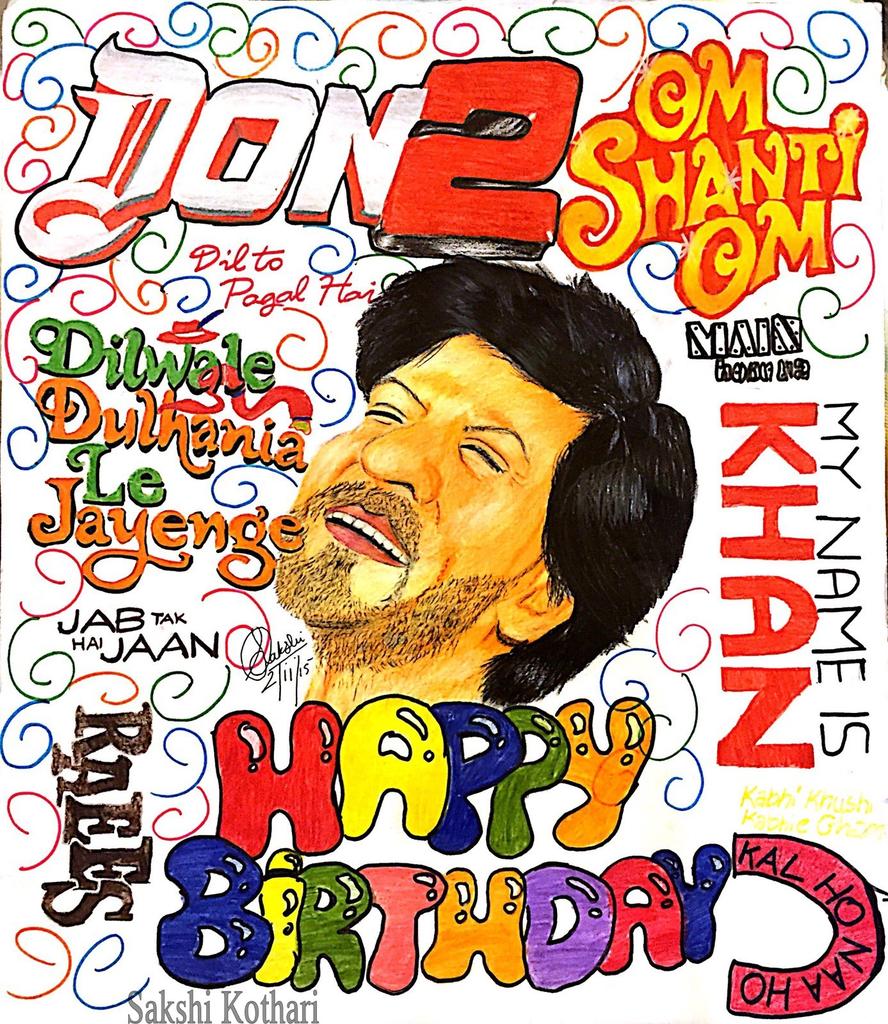 DON 2
OM
SHANTI
OM
Dil to
Pagal Hai
MAIN
hoon na
Dilwale
Dulhania
Le
Jayenge
MY NAME IS
KHAN
JAB TAK
HAI JAAN
Sakshi
2/11/15
RAEES
HAPPY
BIRTHDAY
Kabhi Khushi
Kabhie Gham
KAL HO NAA HO
Sakshi Kothari